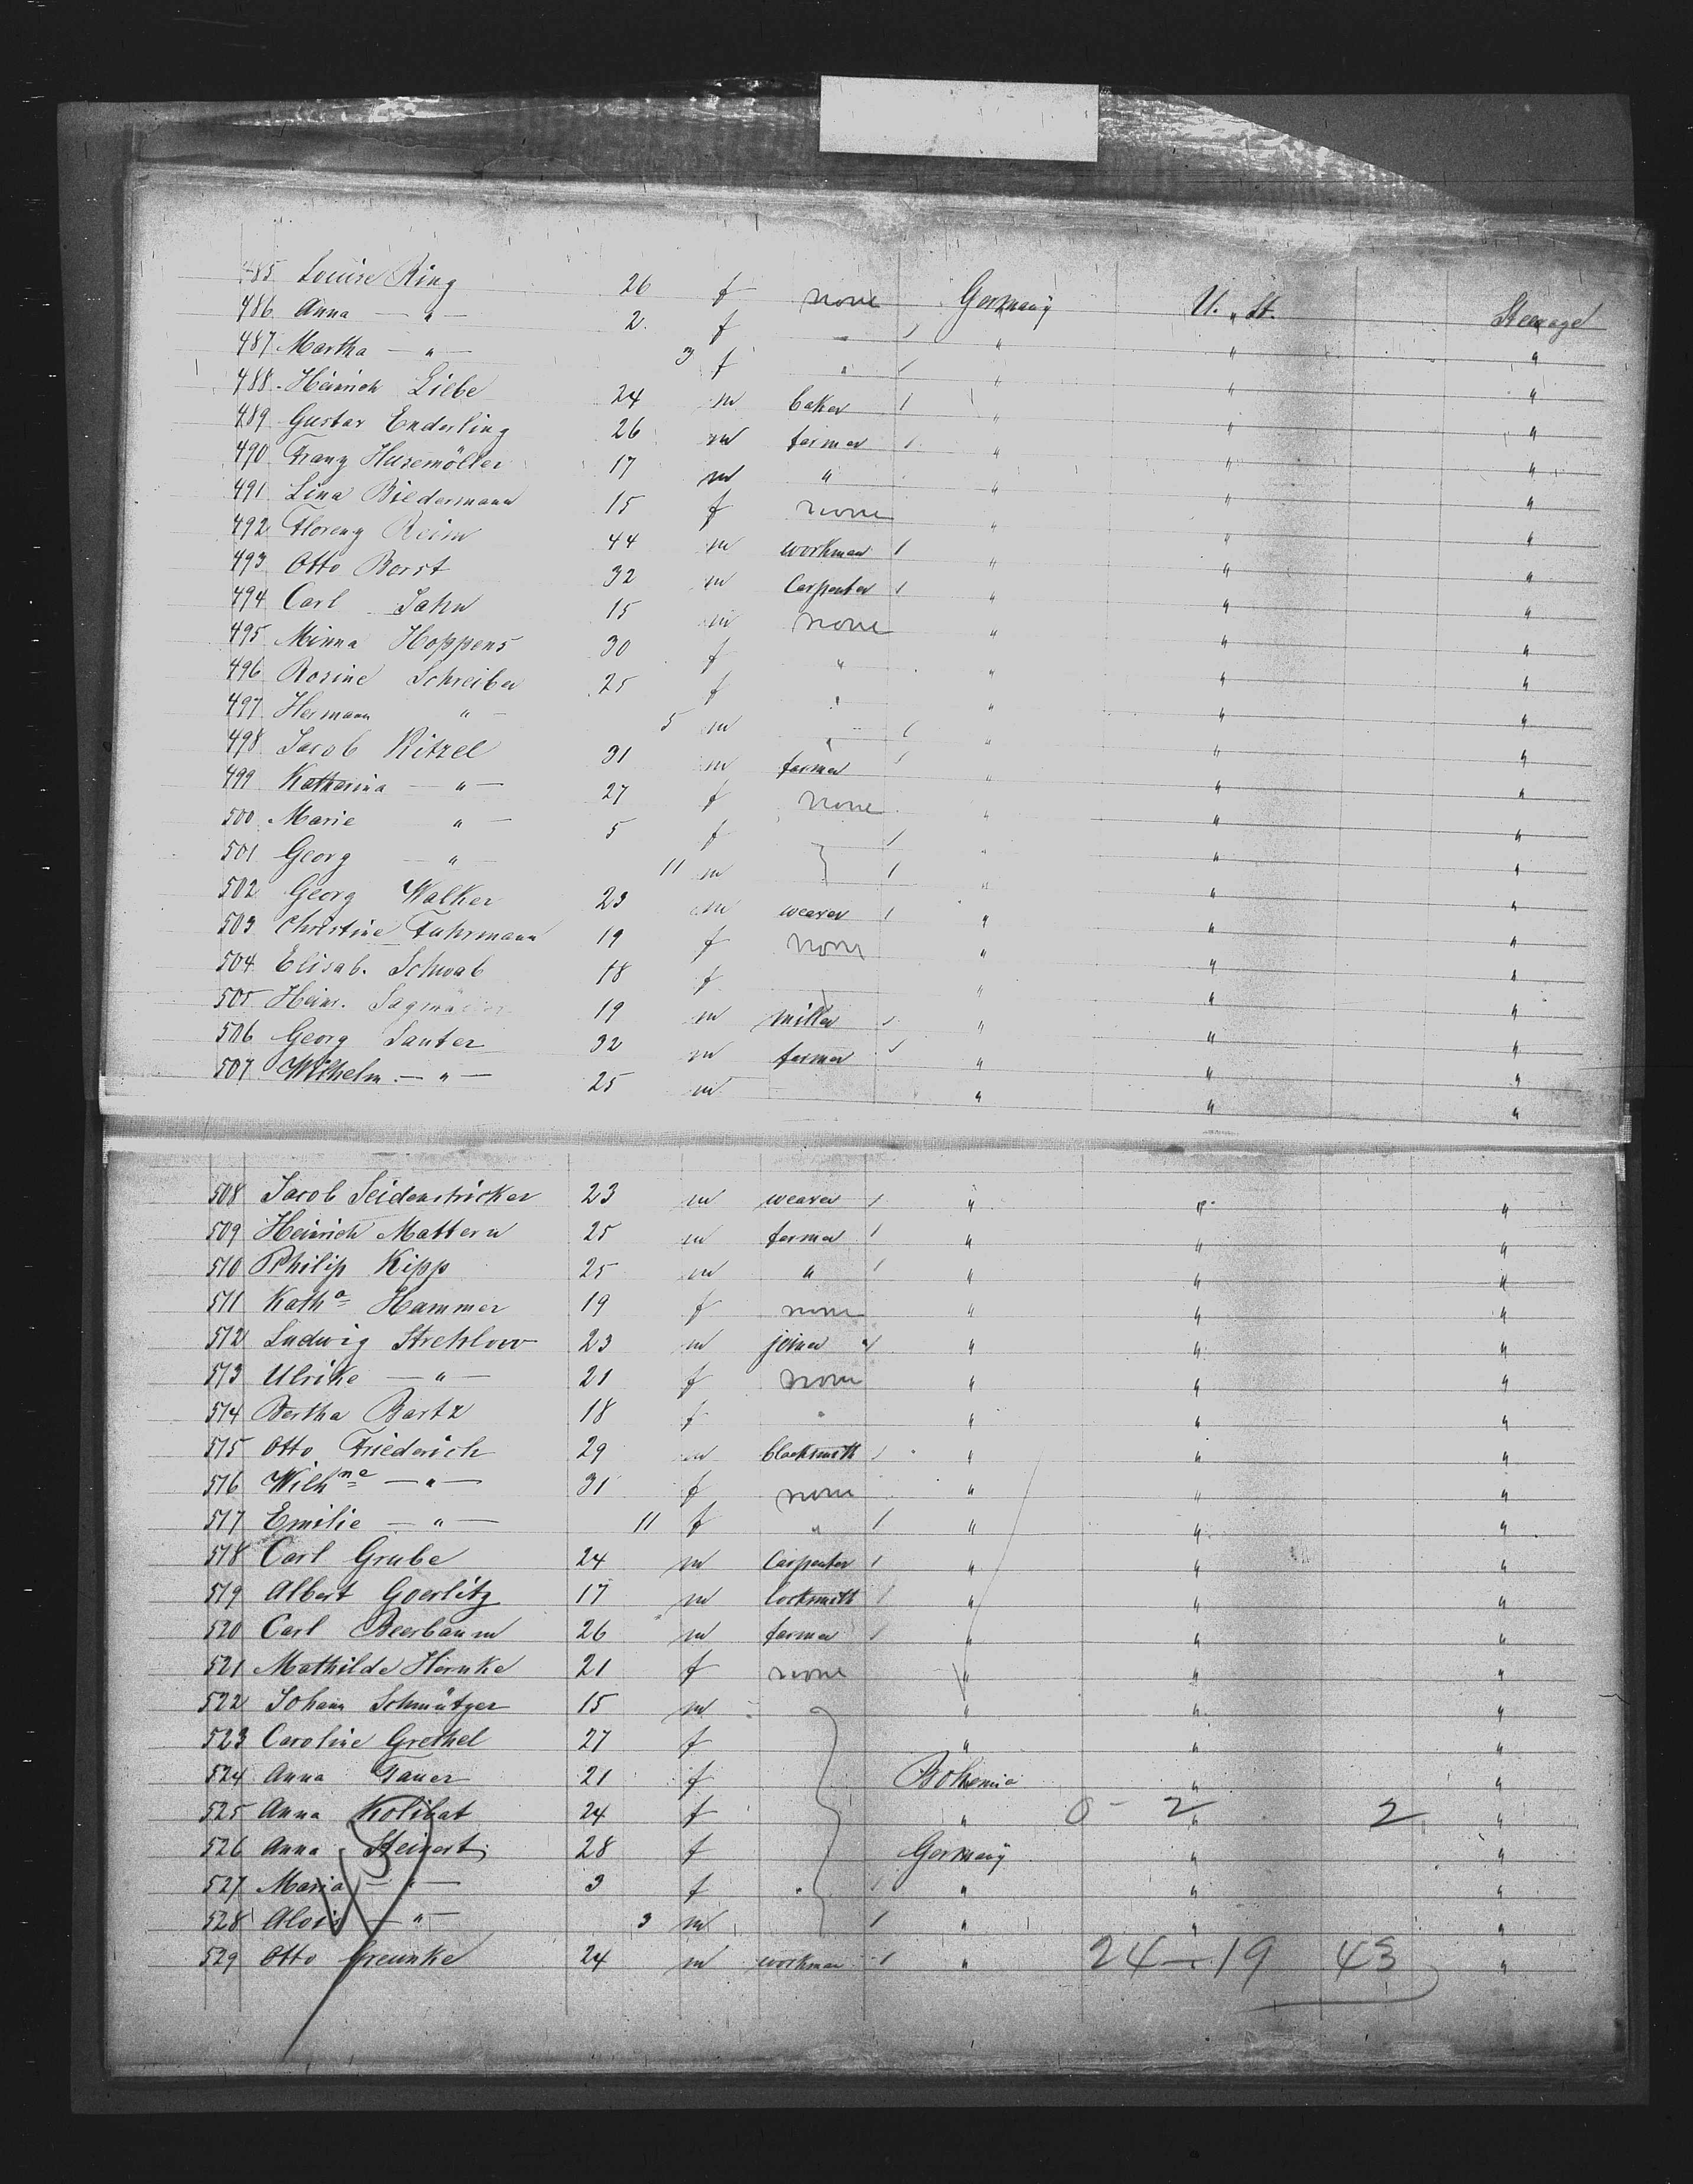 485 Louise Ring 26 f none Germany U. St. Steerage
486 Anna — " — 2 f " " "
487 Martha — " — 3 f " " " "
488 Heinrich Liebe 24 m baker " " "
489 Gustav Enderling 26 m farmer " " "
490 Franz Husemöller 17 m " " " "
491 Lina Biedermann 15 f none " " "
492 Florenz Reim 44 m workman " " "
493 Otto Borst 32 m Carpenter " " "
494 Carl Jahn 15 m none " " "
495 Minna Hoppens 30 f " " " "
496 Rosine Schreiber 25 f " " " "
497 Hermann " — 5 m " " " "
498 Jacob Kitzel 31 m farmer " " "
499 Katharina — " — 27 f none " " "
500 Marie " — 5 f " " "
501 Georg — " — 11 m " " "
502 Georg Walker 23 m weaver " " "
503 Christine Fuhrmann 19 f none " " "
504 Elisab. Schwab 18 f " " "
505 Heinr. 19 m miller " " "
506 Georg Sauter 32 m farmer " " "
507 Wilhelm — " — 25 m " " "
508 Jacob Seidenstricker 23 m weaver " " "
509 Heinrich Mattern 25 m farmer " " "
510 Philip Kipp 25 m " " " "
511 Kath<sup>a</sup> Hammer 19 f none " " "
512 Ludwig Strehlow 23 m joiner " " "
513 Ulrike — " — 21 f none " " "
514 Bertha Bartz 18 f " " " "
515 Otto Friederich 29 m blacksmith " " "
516 Wilh<sup>ne</sup> — " — 31 f none " " "
517 Emilie — " — 11 f " " " "
518 Carl Grube 24 m Carpenter " " "
519 Albert Goerlitz 17 m locksmith " " "
520 Carl Beerbaum 26 m farmer " " "
521 Mathilde Hornke 21 f none " " "
522 Johann Schmützer 15 m " " "
523 Caroline Grethel 27 f " " "
524 Anna Tauer 21 f Bohemia " "
525 Anna Kolibat 24 f " 0 - 2 " 2 "
526 Anna Steinert 28 f Germany " "
527 Maria — " — 3 f " " "
528 Alois — " — 3 m " " "
529 Otto Greunke 24 m workman " 24 — 19 43 "